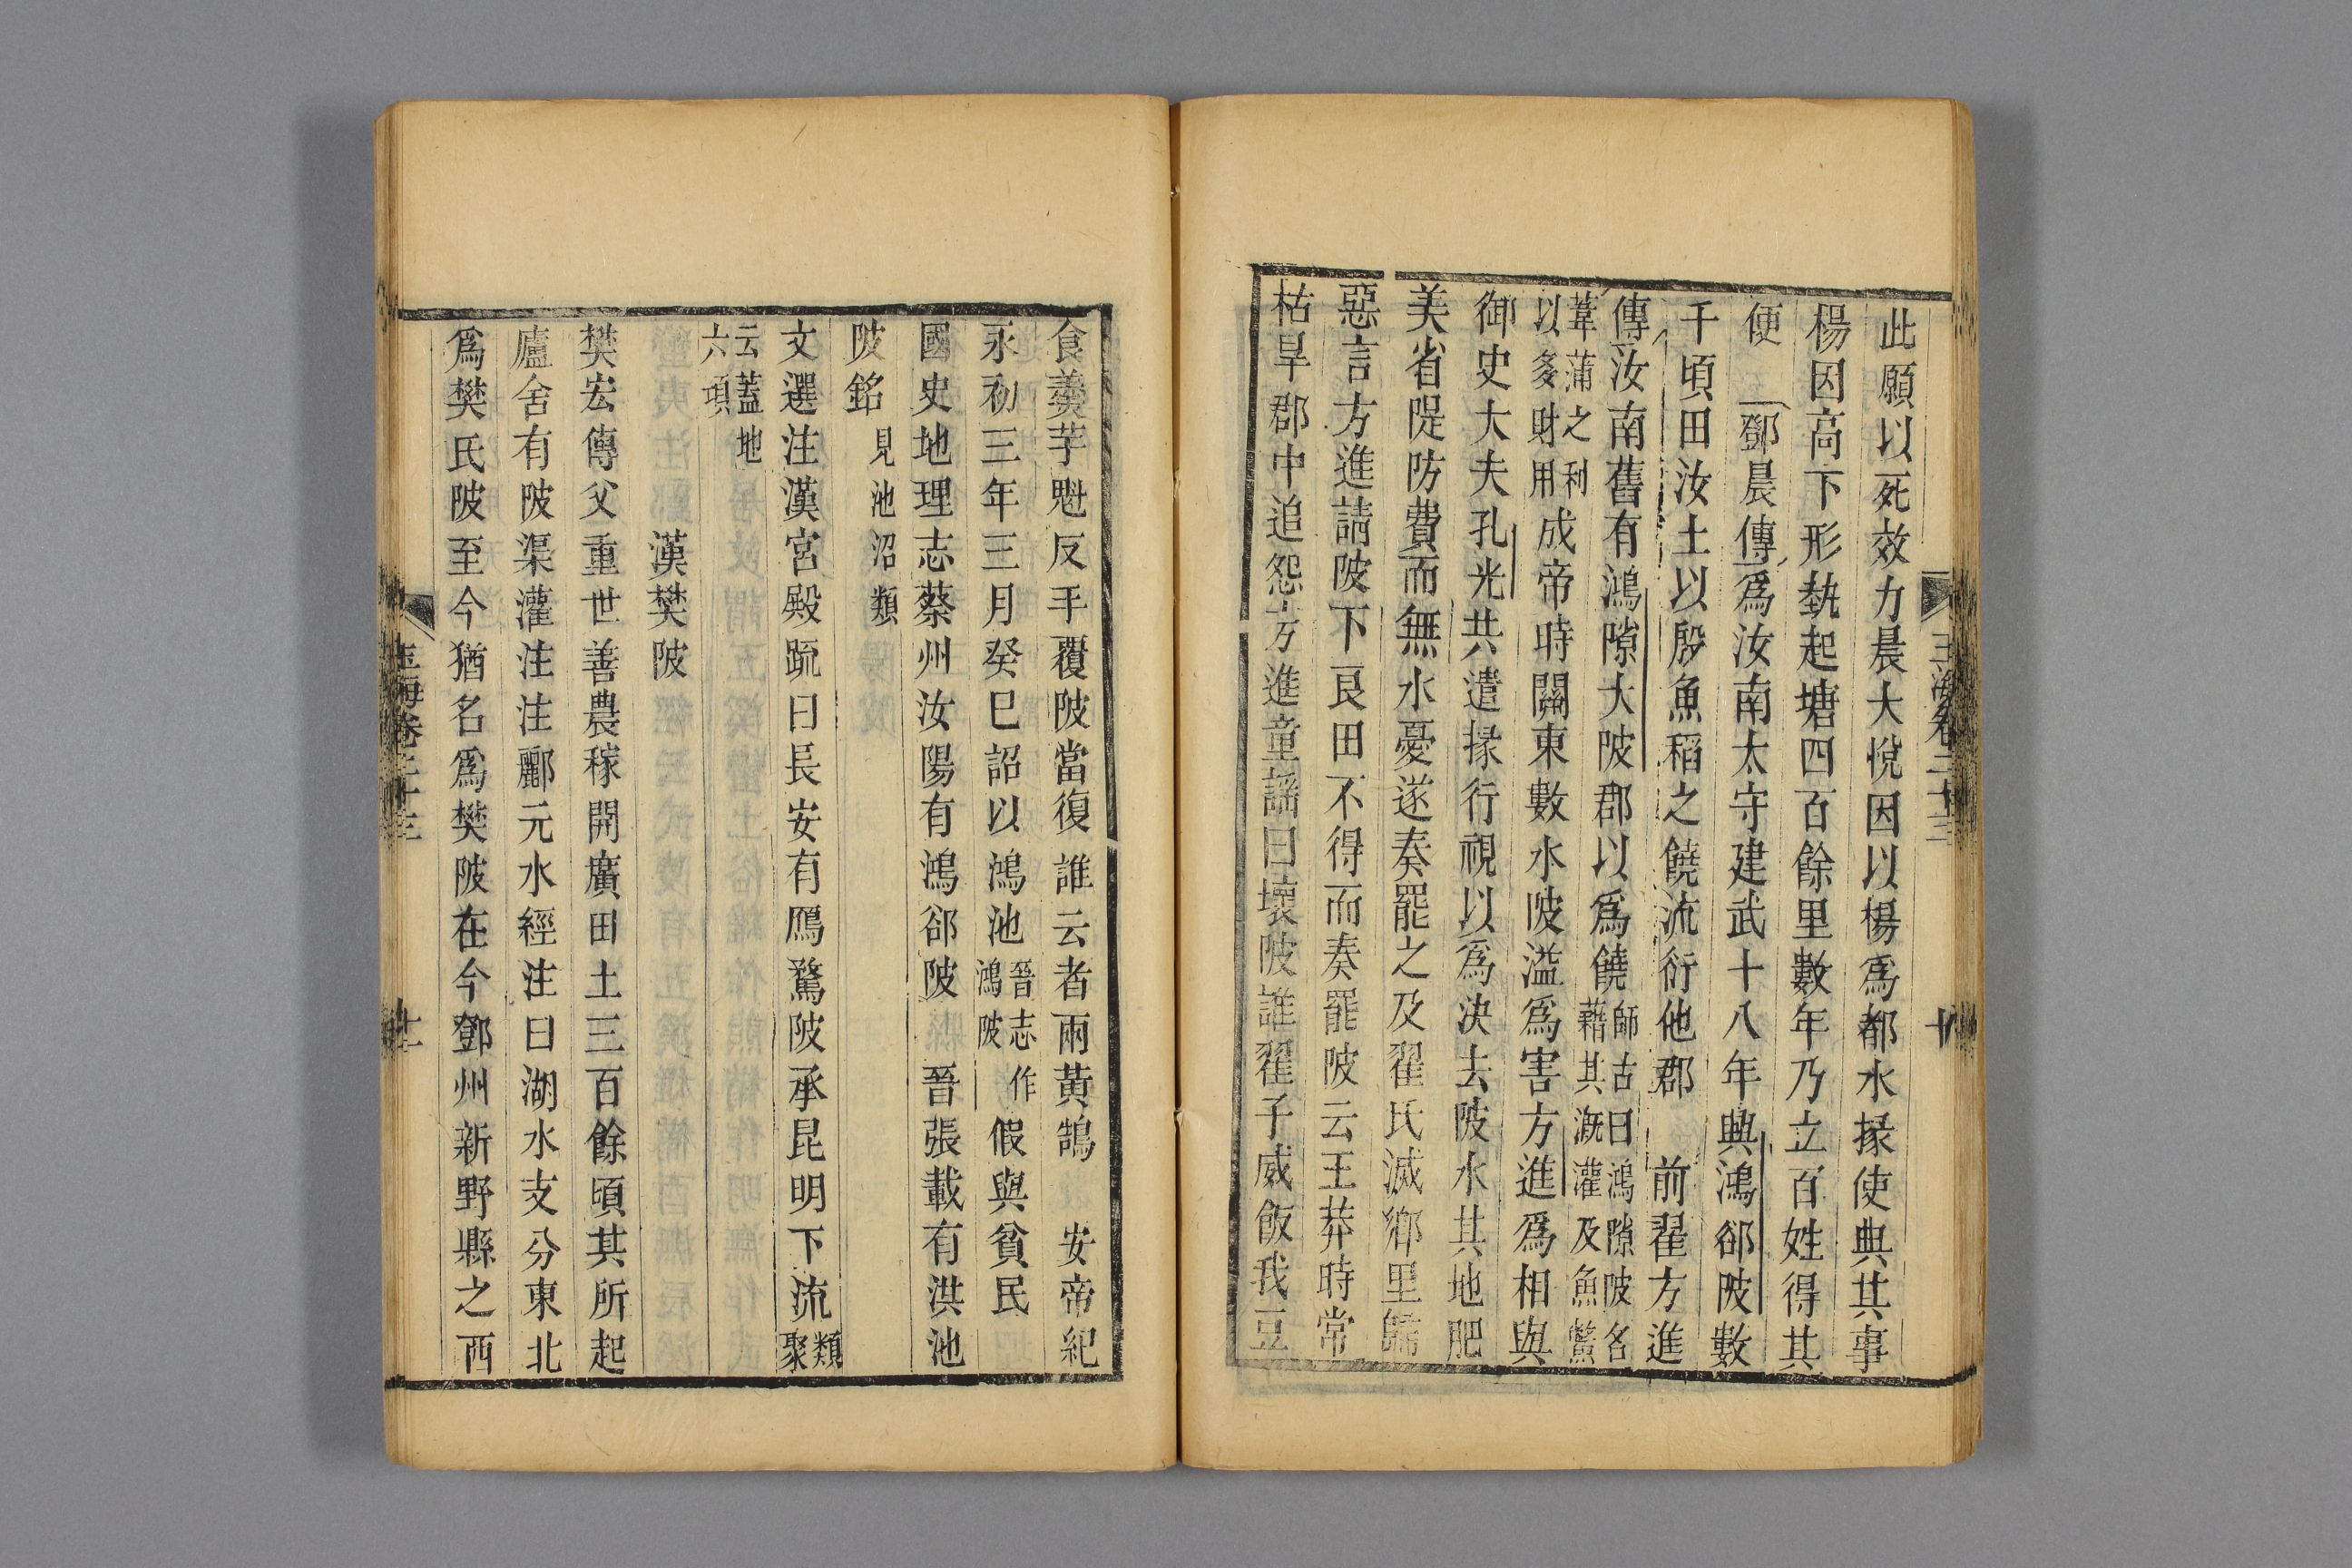 此願以死效力晨大悅因以楊爲都水掾使典其事
楊因高下形埶起塘四百餘里數年乃立百姓得其
便 鄧晨傳爲汝南太守建武十八年興鴻郤陂數
千頃田汝土以殷魚稻之饒流衍他郡 前翟方進
傳汝南舊有鴻隙大陂郡以爲饒師古曰鴻隙陂名藉其漑灌及魚鱉
萑蒲之利以多財用成帝時關東數水陂溢爲害方進爲相與
御史大夫孔光共遣掾行視以爲決去陂水其地肥
美省隄防費而無水憂遂奏罷之及翟氏滅鄉里歸
惡言方進請陂下良田不得而奏罷陂云王莽時常
枯旱郡中追怨方進童謡曰壞陂誰翟子威飯我豆
食羹芋魁反乎覆陂當復誰云者兩黃鵠 安帝紀
永初三年三月癸巳詔以鴻池晉志作鴻陂假與貧民
國史地理志蔡州汝陽有鴻郤陂 晉張載有洪池
陂銘見池沼類
文選注漢宮殿疏曰長安有鴈鶩陂承昆明下流類聚
云蓋地六頃
漢樊陂
樊宏傳父重世善農稼開廣田土三百餘頃其所起
廬舍有陂渠灌注注酈元水經注曰湖水支分東北
爲樊氏陂至今猶名爲樊陂在今鄧州新野縣之西
玉海卷二十三
十一